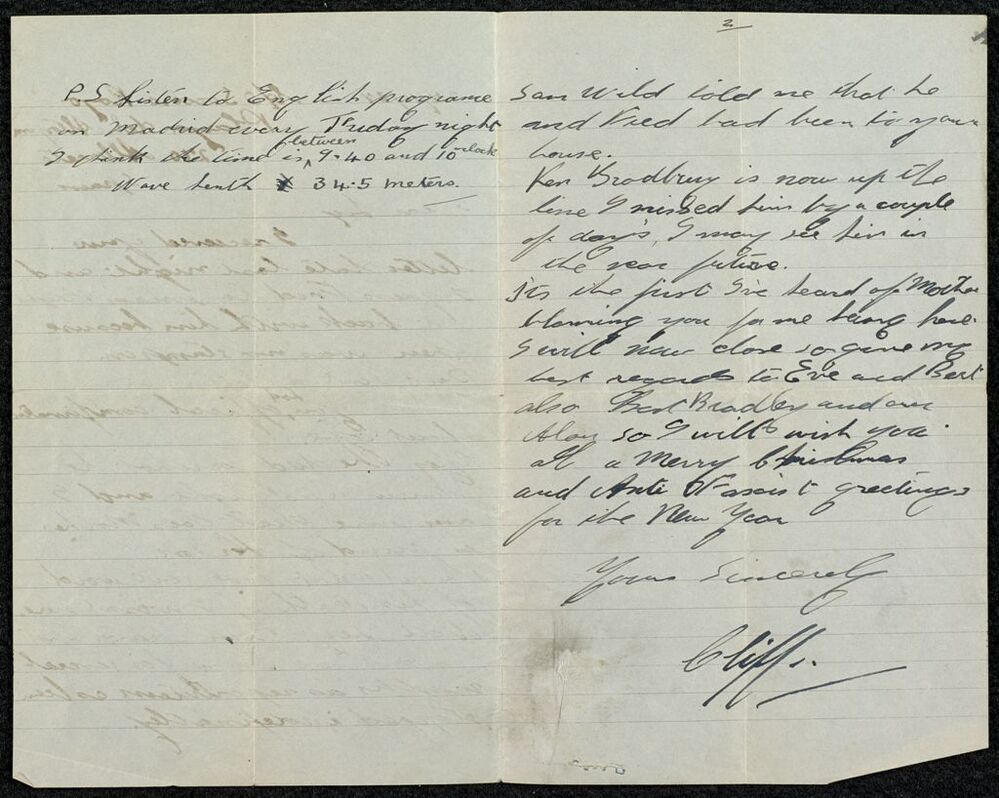 2
Sam Wild told me that he
and Fred had been to your
house.
Ken Bradbury is now up the
line I missed him by a couple
of day's, I may see him in
the near future.
Its the first I've heard of Mother
blaming you for me being here.
I will now close so give my
best regards to Eve and Bert
also Bert Bradley and our
Alan so I will wish you
all a Merry Christmas
and Anti Fascist greetings
for the New Year
Yours Sincerely
Cliff.
P.S Listen to English programe
on Madrid every Friday night
I think the time is between 9.40 and 10 oclock
Wave lenth 34.5 meters.